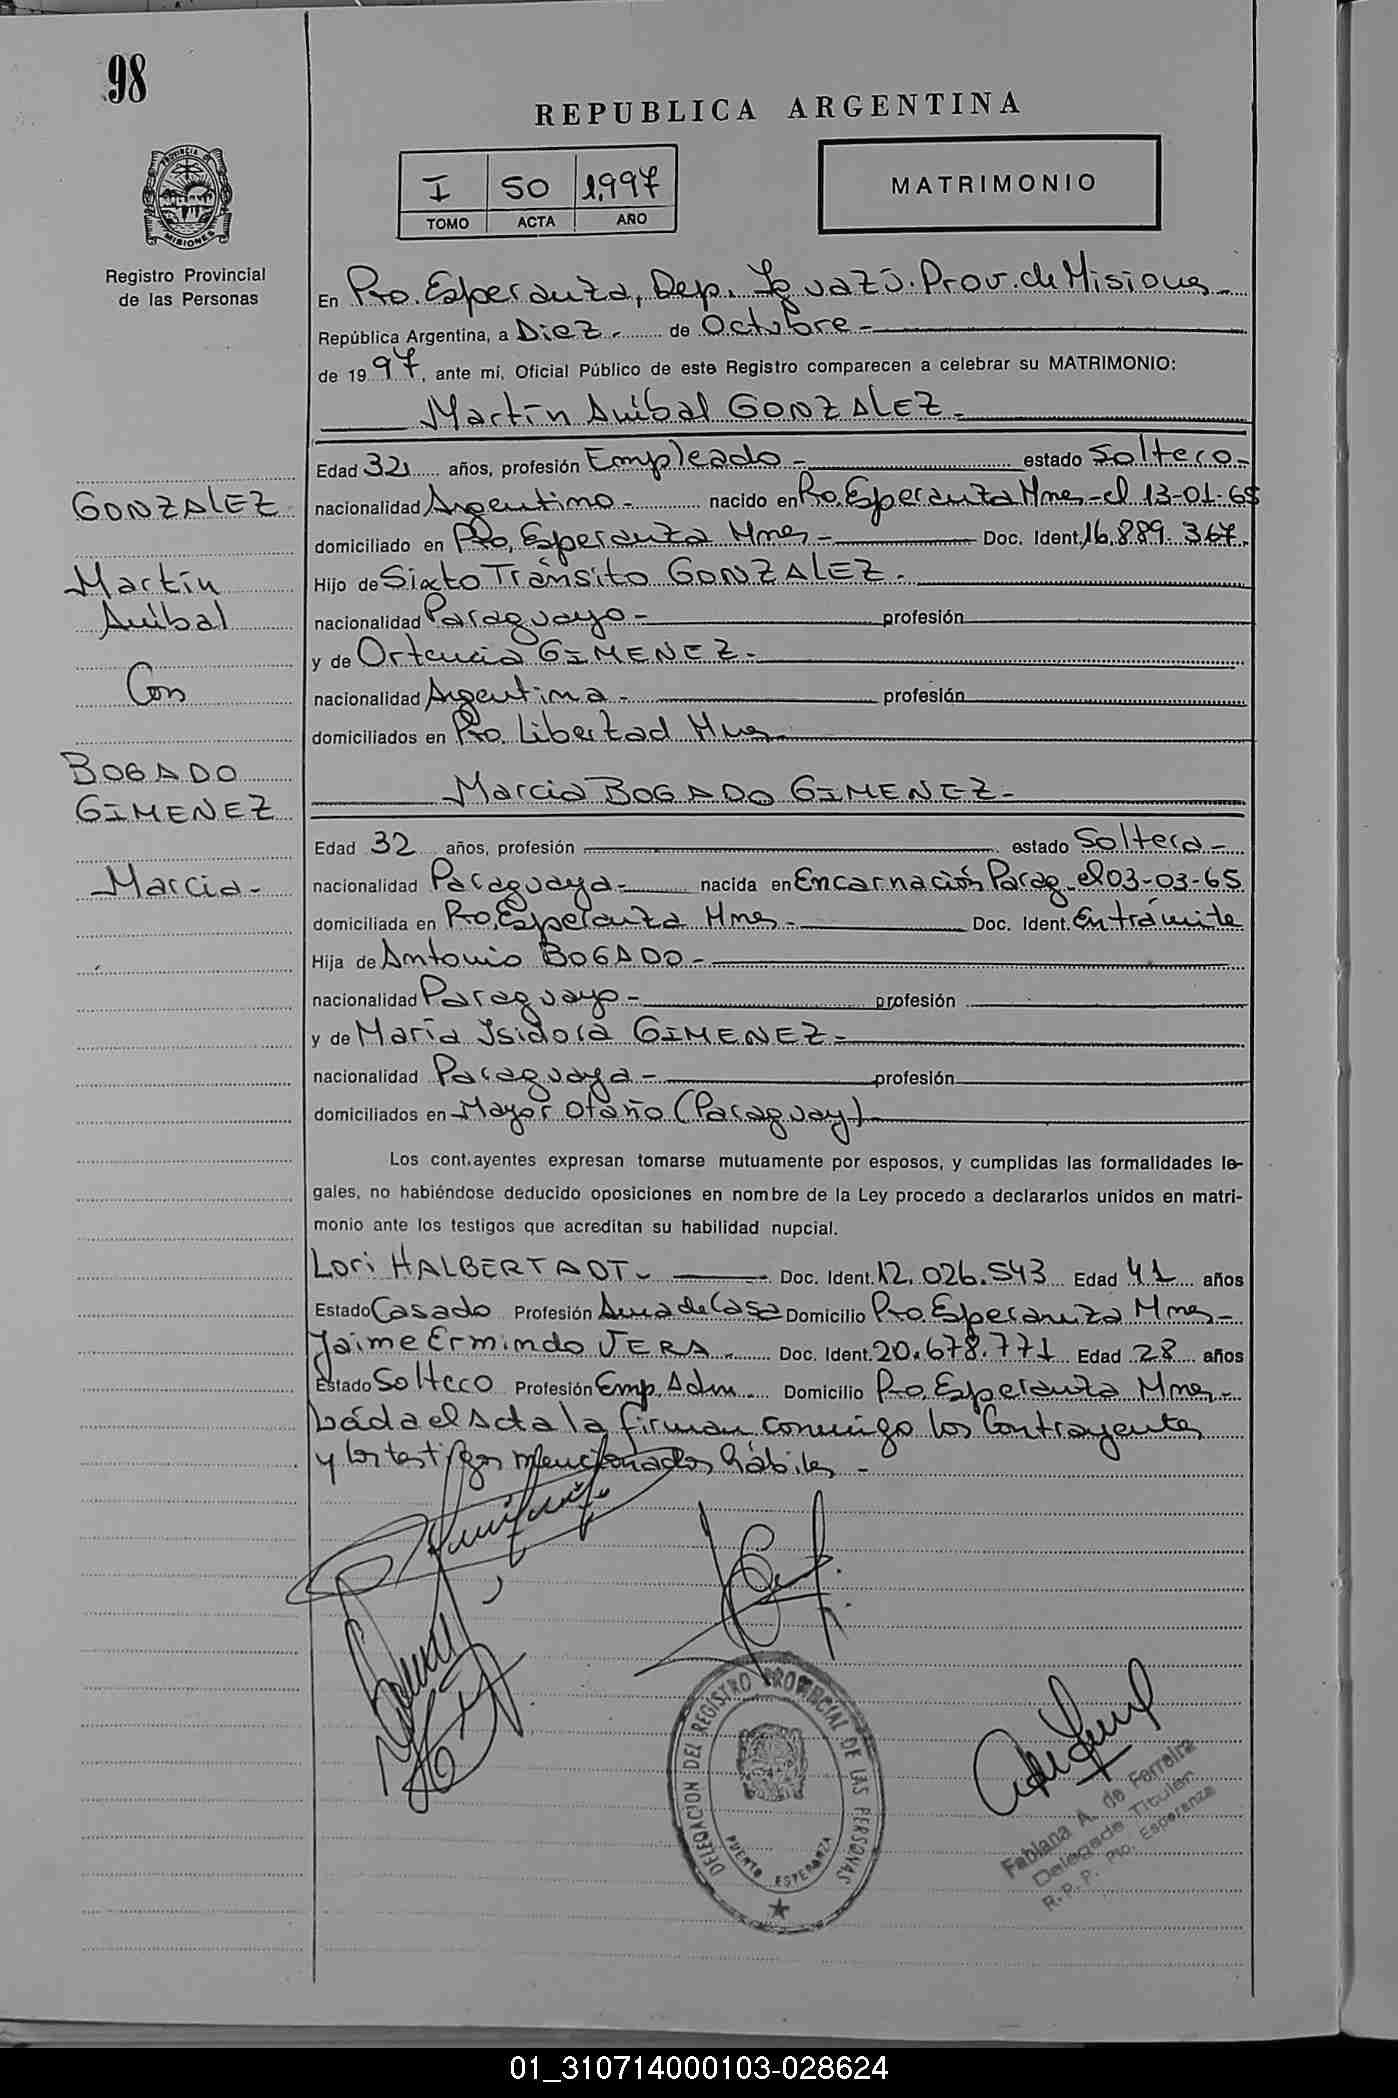 98
REPUBLICA ARGENTINA
I 50 1,997
TOMO ACTA AÑO
MATRIMONIO
PROVINCIA DE MISIONES
Registro Provincial
de las Personas
En Pto. Esperanza, Dep. Iguazú. Prov. de Misiones
República Argentina, a Diez.- de Octubre-
de 1997, ante mí, Oficial Público de este Registro comparecen a celebrar su MATRIMONIO:
Martín Anibal GONZALEZ-
Edad 32 años, profesión Empleado- estado Soltero-
GONZALEZ
nacionalidad Argentino- nacido en Pto. Esperanza Mnes-el 13-01-65
domiciliado en Pto. Esperanza Mnes- Doc. Ident. 16.889.367.
Martín
Hijo de Sixto Tránsito GONZALEZ-
Anibal
nacionalidad Paraguayo- profesión
y de Ortencia GIMENEZ-
Con
nacionalidad Argentina- profesión
domiciliados en Pto. Libertad Mnes-
BOGADO
GIMENEZ
Marcia BOGADO GIMENEZ-
Edad 32 años, profesión estado Soltera-
Marcia-
nacionalidad Paraguaya- nacida en Encarnación Parag. el 03-03-65
domiciliada en Pto. Esperanza Mnes- Doc. Ident. En trámite
Hija de Antonio BOGADO-
nacionalidad Paraguayo- profesión
y de María Isidora GIMENEZ-
nacionalidad Paraguaya- profesión
domiciliados en Mayor Otaño (Paraguay)
Los cont.ayentes expresan tomarse mutuamente por esposos, y cumplidas las formalidades le-
gales, no habiéndose deducido oposiciones en nombre de la Ley procedo a declararlos unidos en matri-
monio ante los testigos que acreditan su habilidad nupcial.
Lori HALBERTADT- Doc. Ident. 12.026.543 Edad 41 años
Estado Casado Profesión Ama de Casa Domicilio Pto. Esperanza Mnes-
Jaime Ermindo VERA- Doc. Ident. 20.678.771 Edad 28 años
Estado Soltero Profesión Emp. Adm. Domicilio Pto. Esperanza Mnes-
Leída el Acta la firman conmigo los Contrayentes
y los testigos mencionados hábiles-
DELEGACION DEL REGISTRO PROVINCIAL DE LAS PERSONAS
PUERTO ESPERANZA
Fabiana A. de Ferreira
Delegada Titular
R.P.P. Pto. Esperanza
01_310714000103-028624